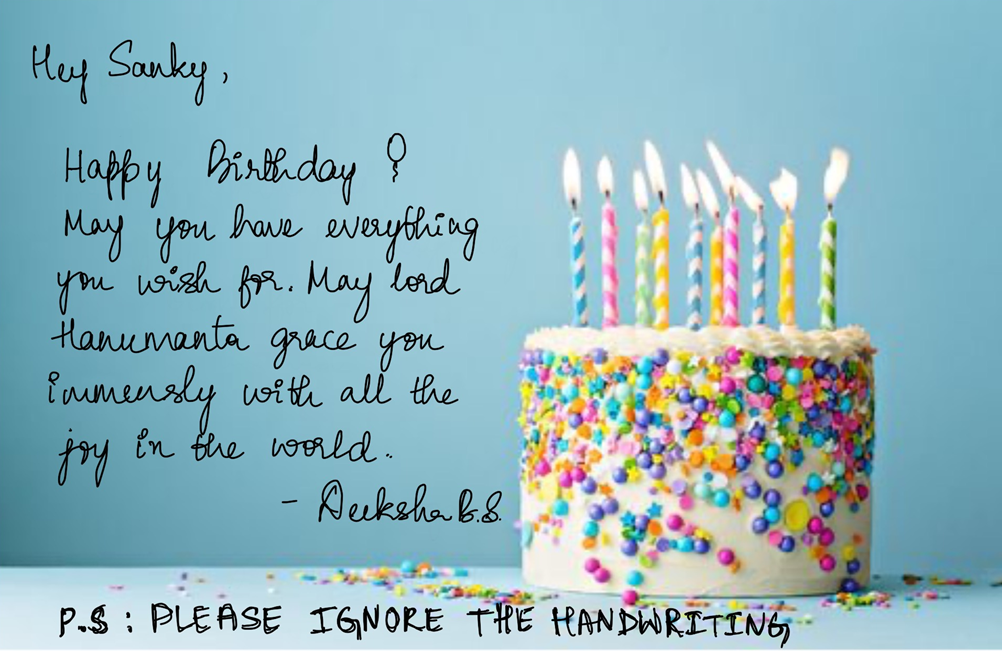 Hey Sanky,
Happy Birthday
May you have everything
you wish for. May lord
Hanumanta grace you
immensly with all the
joy in the world.
- Deeksha B.S.
P.S : PLEASE IGNORE THE HANDWRITING